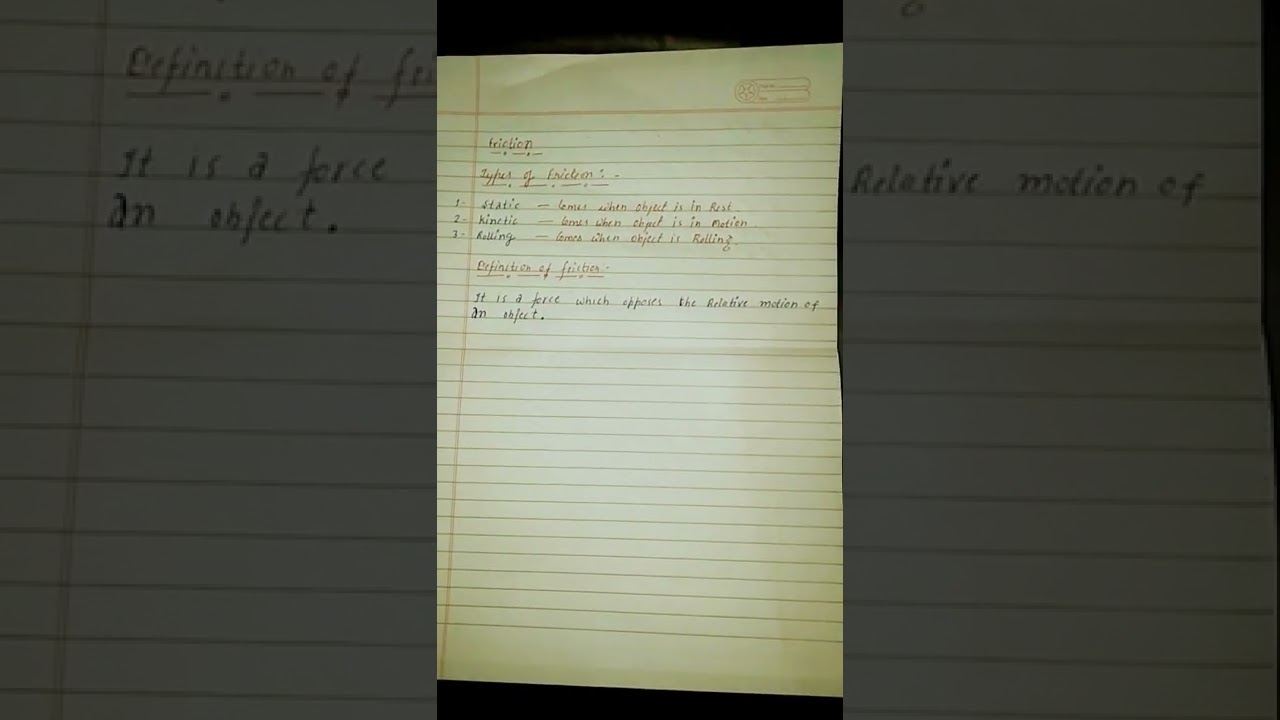 Friction
Types of Friction:-
1- Static — Comes when object is in Rest.
2- Kinetic — Comes when object is in Motion.
3- Rolling — Comes when object is Rolling.
Definition of friction:-
It is a force which opposes the Relative motion of
an object.